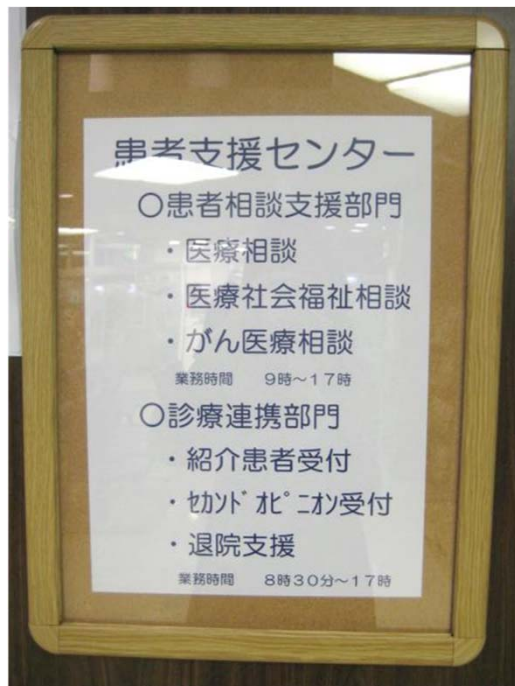 患者支援センター
○患者相談支援部門
・医療相談
・医療社会福祉相談
・がん医療相談
業務時間　9時～17時
○診療連携部門
・紹介患者受付
・ｾｶﾝﾄﾞｵﾋﾟﾆｵﾝ受付
・退院支援
業務時間　8時30分～17時